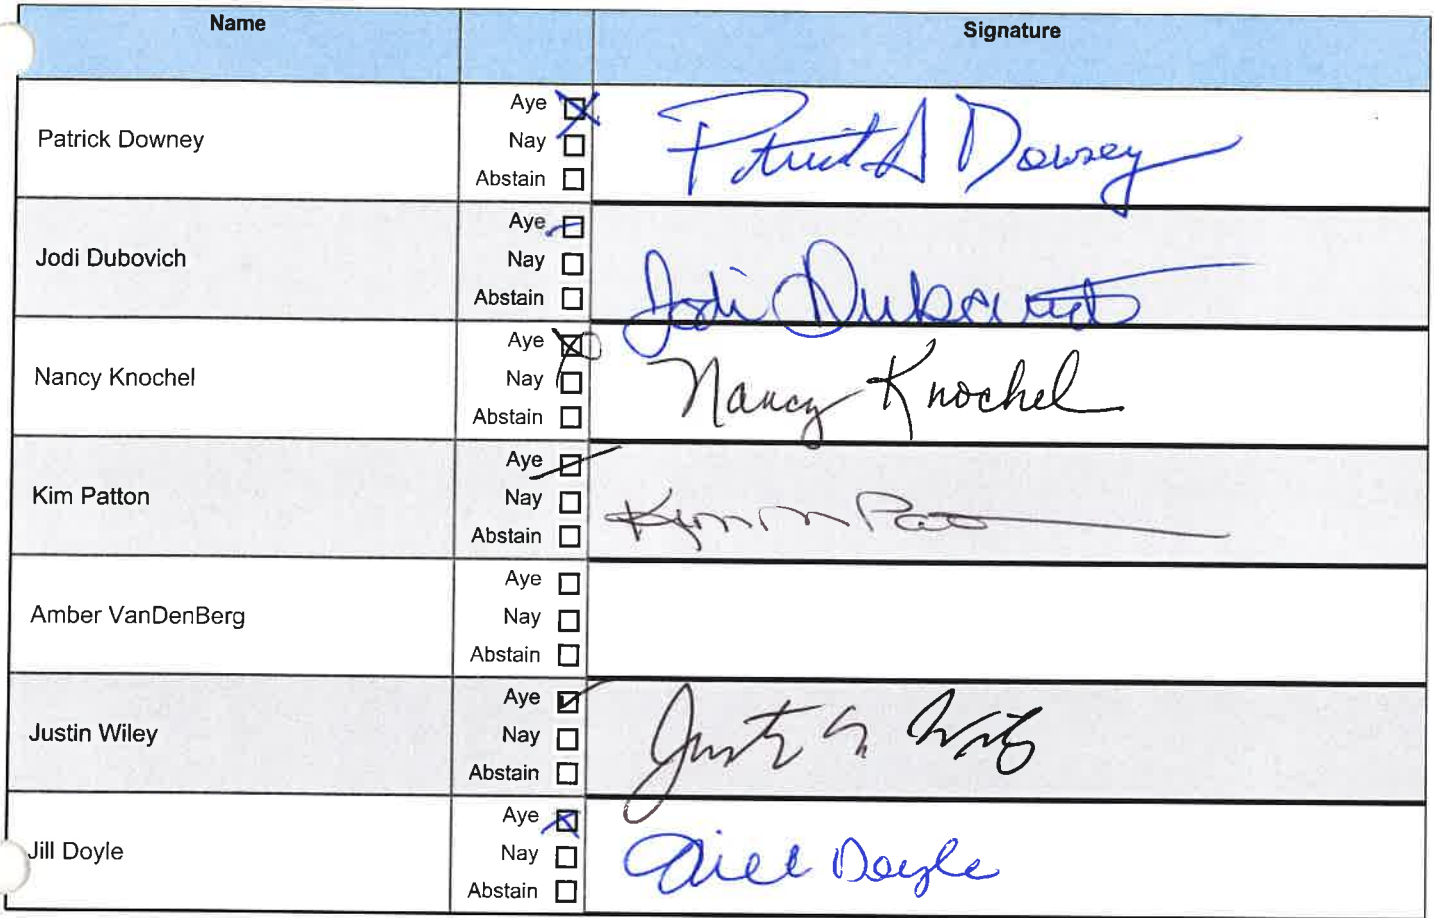 Name Signature
Patrick Downey
Aye ☒
Nay ☐
Abstain ☐
Patrick A Downey
Jodi Dubovich
Aye ☑
Nay ☐
Abstain ☐
Jodi Dubovich
Nancy Knochel
Aye ☒
Nay ☐
Abstain ☐
Nancy Knochel
Kim Patton
Aye ☑
Nay ☐
Abstain ☐
Kim M Patton
Amber VanDenBerg
Aye ☐
Nay ☐
Abstain ☐
Justin Wiley
Aye ☑
Nay ☐
Abstain ☐
Justin Wiley
Jill Doyle
Aye ☒
Nay ☐
Abstain ☐
Jill Doyle